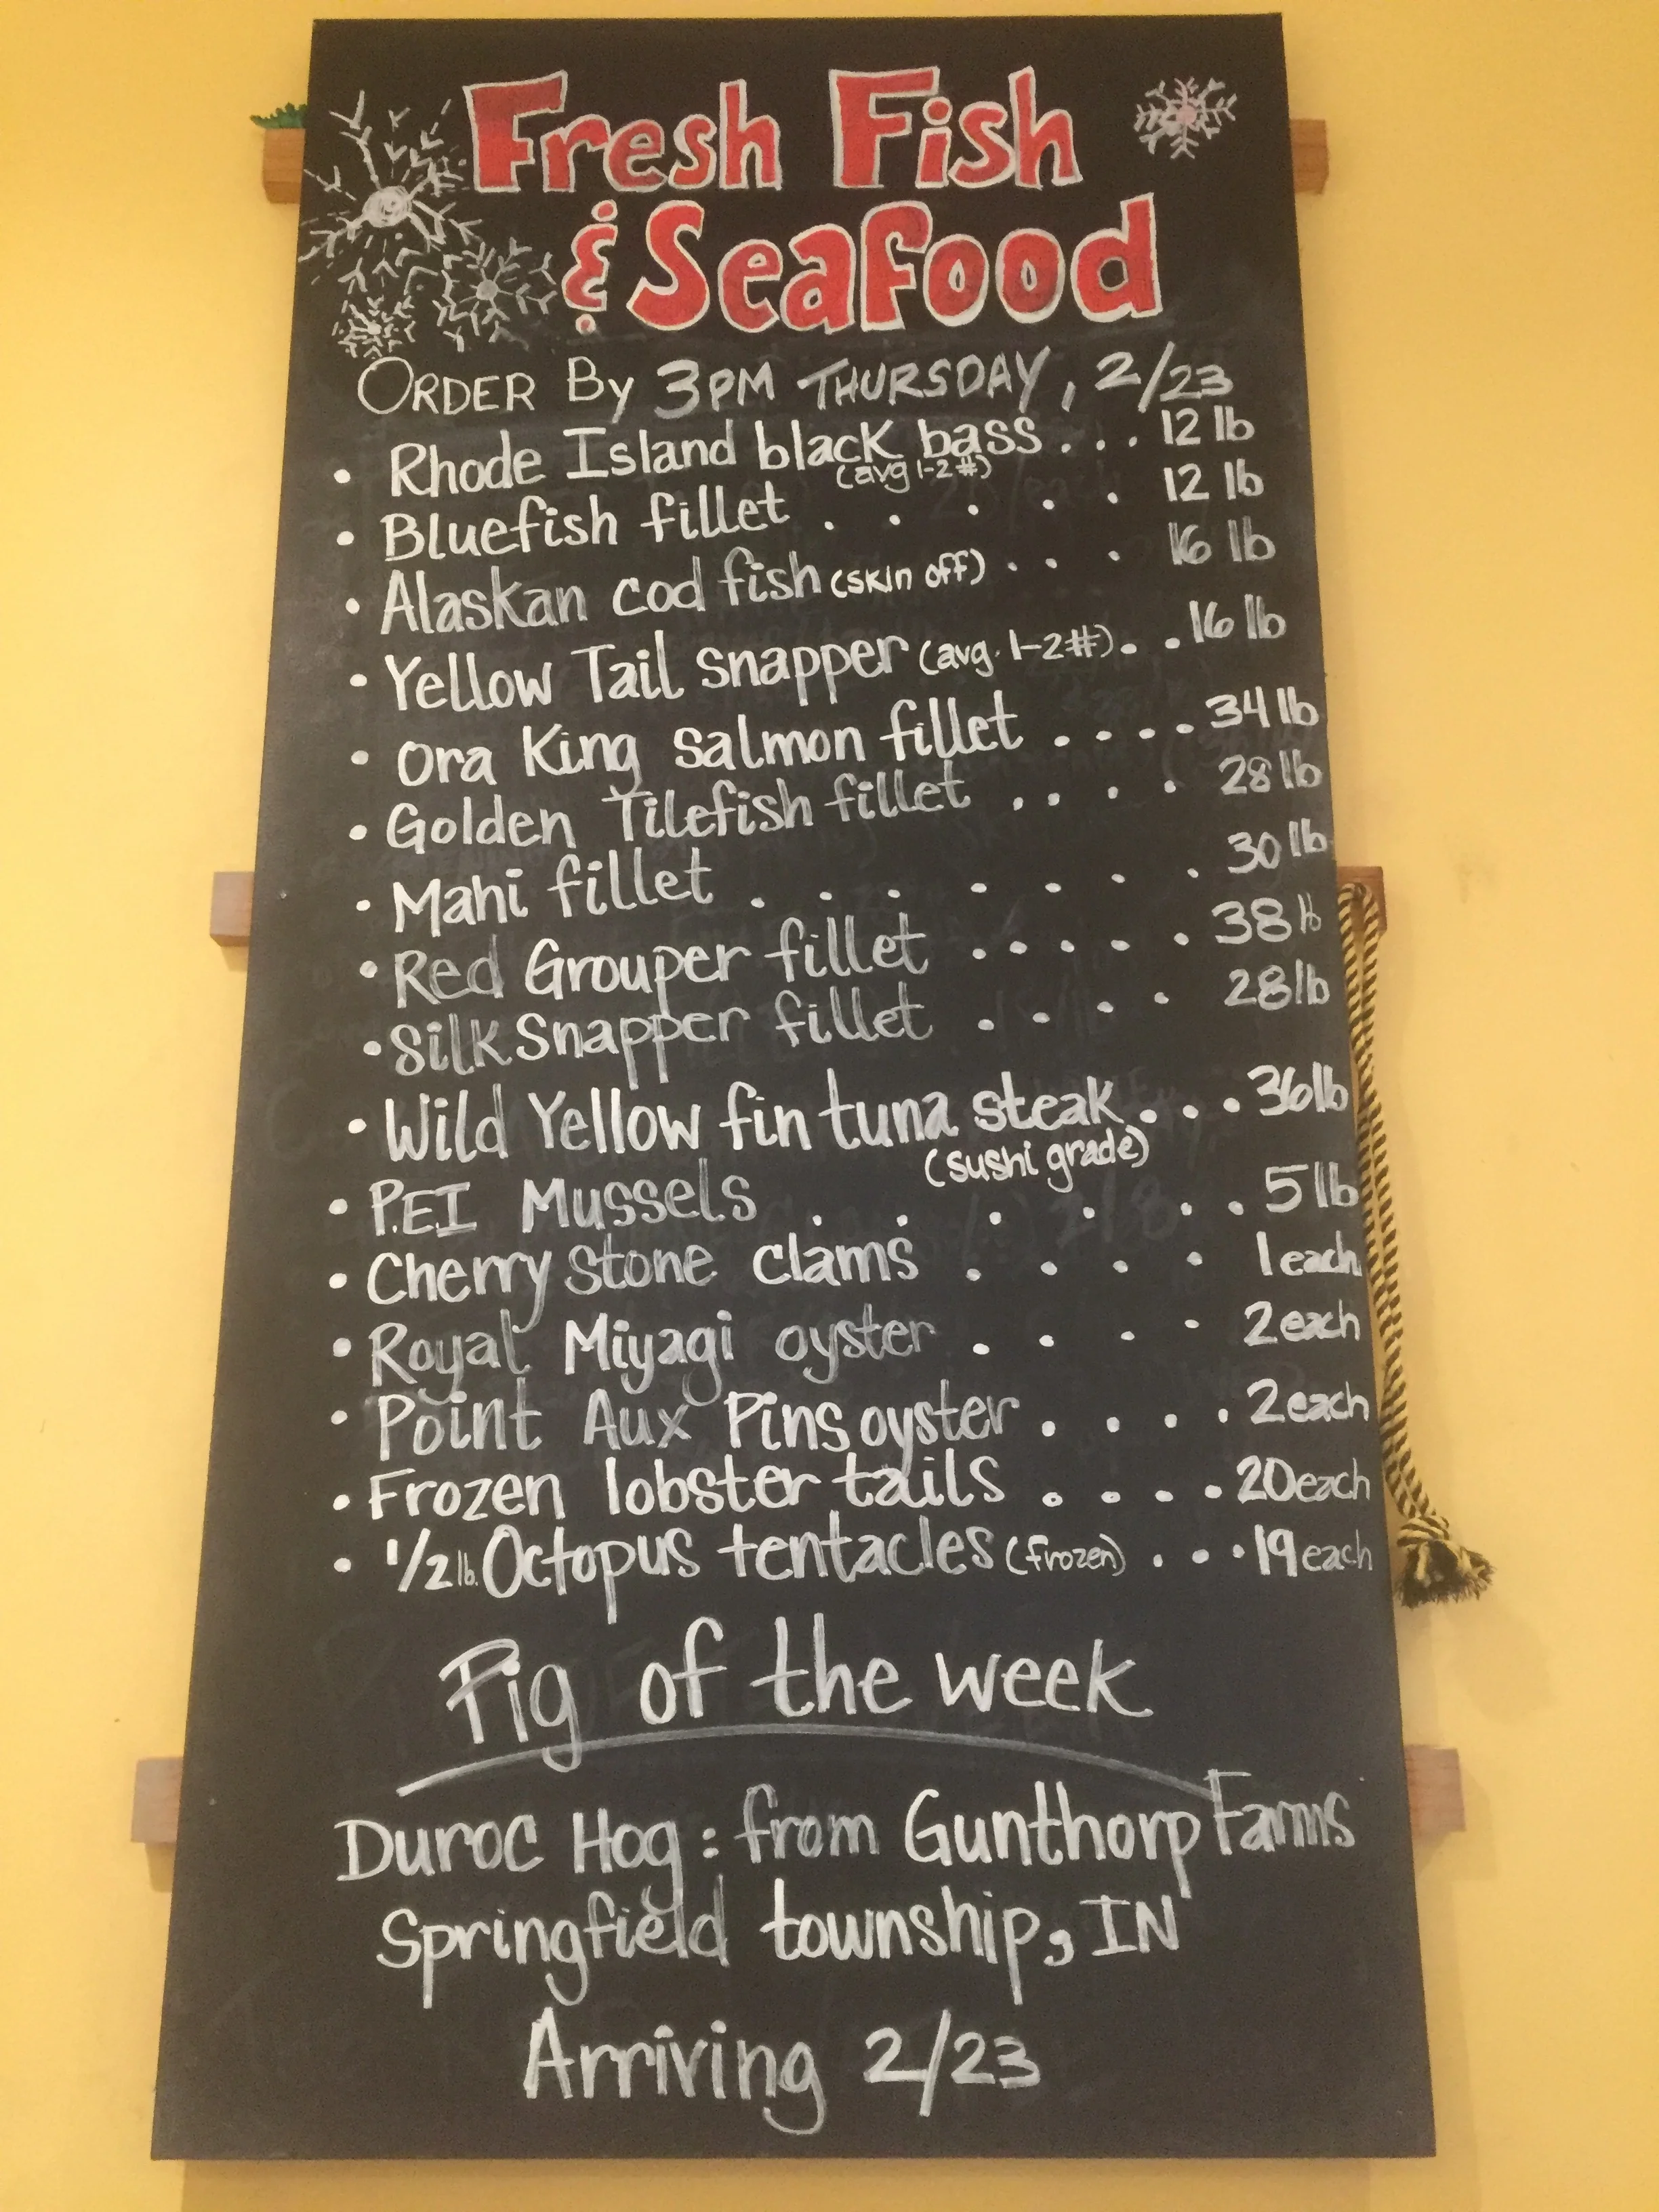 Fresh Fish
& Seafood
ORDER By 3PM THURSDAY, 2/23
• Rhode Island black bass . . . 12 lb
(avg 1-2#)
• Bluefish fillet . . . . . 12 lb
• Alaskan cod fish (skin off) . . . 16 lb
• Yellow Tail snapper (avg. 1-2#) . . 16 lb
• Ora King salmon fillet . . . . 34 lb
• Golden Tilefish fillet . . . . 28 lb
• Mahi fillet . . . . . . . 30 lb
• Red Grouper fillet . . . . . 38 lb
• Silk Snapper fillet . . . . 28 lb
• Wild Yellow fin tuna steak . . . 36 lb
(sushi grade)
• P.E.I Mussels . . . . . . 5 lb
• Cherry Stone clams . . . . 1 each
• Royal Miyagi oyster . . . . 2 each
• Point Aux Pins oyster . . . . 2 each
• Frozen lobster tails . . . . 20 each
• 1/2 lb. Octopus tentacles (frozen) . . . 19 each
Pig of the week
Duroc Hog: from Gunthorp Farms
Springfield township, IN
Arriving 2/23